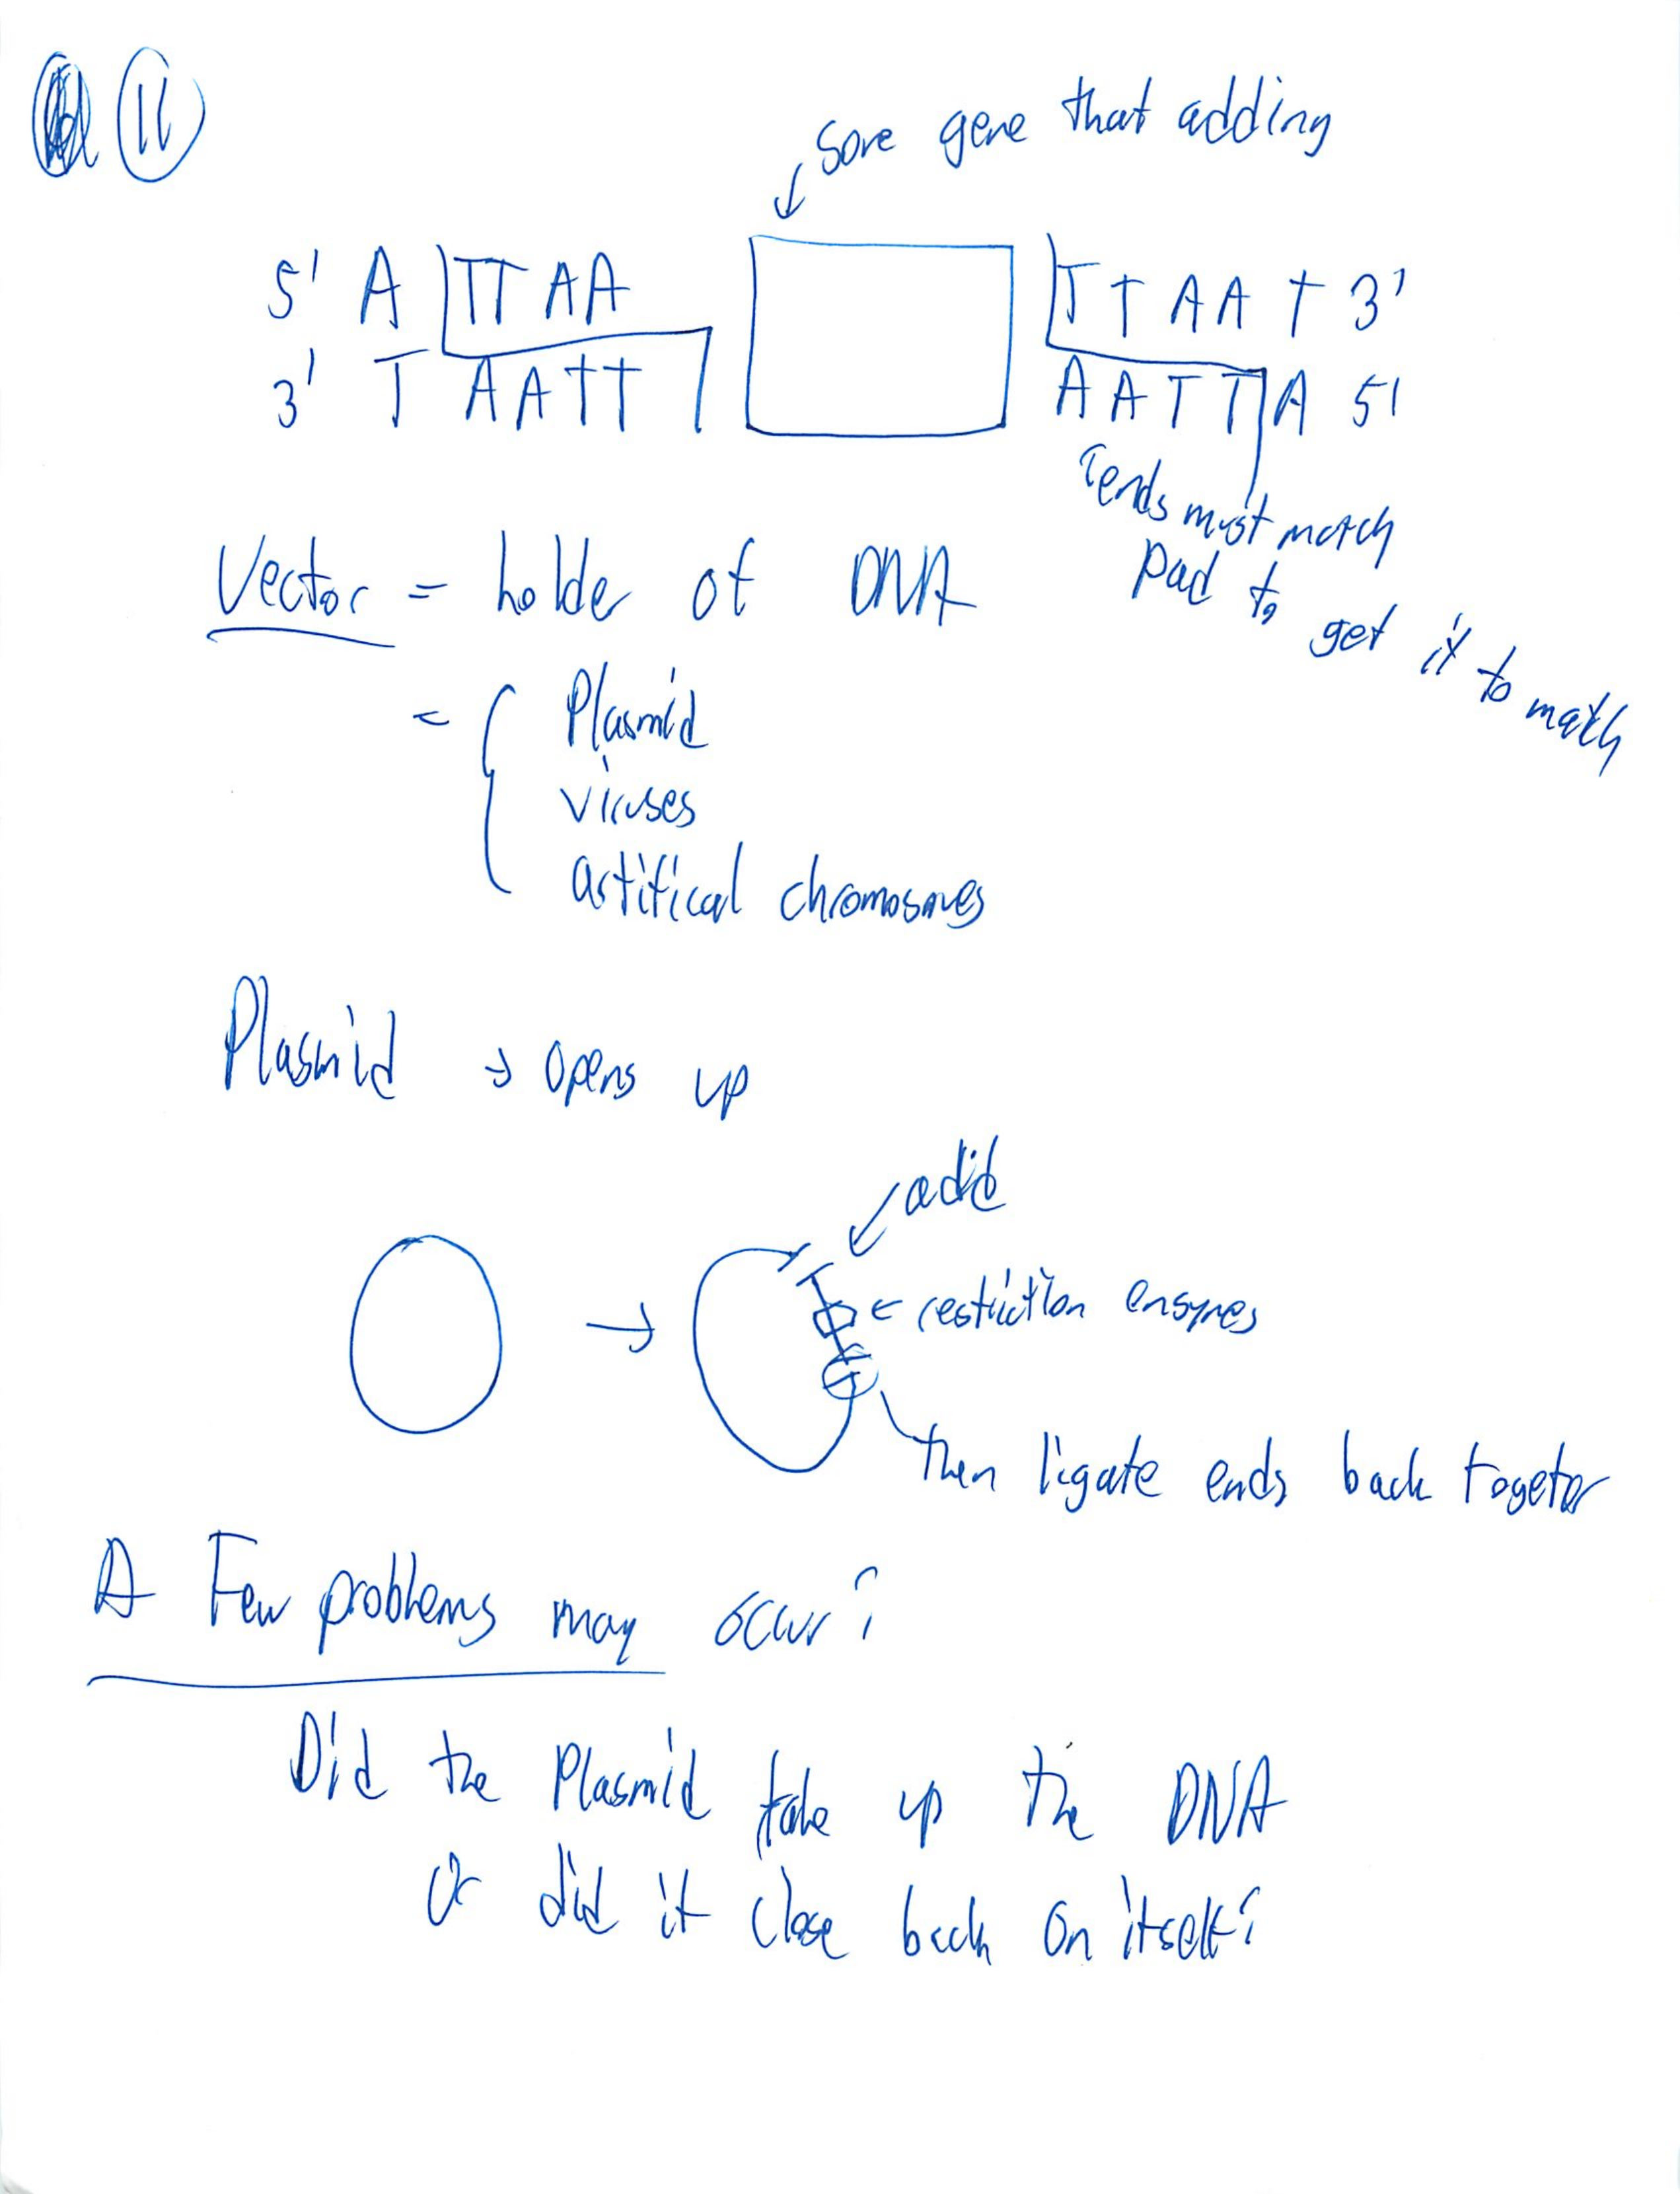 11
some gene that adding
5' A TTAA TTAAT 3'
3' T AATT AATTA 5'
ends must match
Pad to get it to match
Vector = holder of DNA
= { Plasmid
viruses
artifical chromosomes
Plasmid → opens up
add
→ ← restriction ensymes
then ligate ends back togeter
A Few problems may occur?
Did the Plasmid take up the DNA
or did it close back on itself?